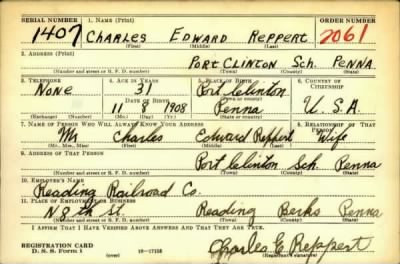 SERIAL NUMBER 1. NAME (Print) ORDER NUMBER
1407 CHARLES EDWARD REPPERT 2061
(First) (Middle) (Last)
2. ADDRESS (Print)
PORT CLINTON Sch. PENNA
(Number and street or R. F. D. number) (Town) (County) (State)
3. TELEPHONE 4. AGE IN YEARS 5. PLACE OF BIRTH 6. COUNTRY OF CITIZENSHIP
NONE 31 Port Clinton
DATE OF BIRTH (Town or county)
11 8 1908 Penna U.S.A.
(Exchange) (Number) (Mo.) (Day) (Yr.) (State or country)
7. NAME OF PERSON WHO WILL ALWAYS KNOW YOUR ADDRESS 8. RELATIONSHIP OF THAT PERSON
Charles Edward Reppert Wife
(Mr., Mrs., Miss) (First) (Middle) (Last)
9. ADDRESS OF THAT PERSON
Port Clinton Sch. Penna
(Number and street or R. F. D. number) (Town) (County) (State)
10. EMPLOYER'S NAME
Reading Railroad Co.
11. PLACE OF EMPLOYMENT OR BUSINESS
N 8th St. Reading Berks Penna
(Number and street or R. F. D. number) (Town) (County) (State)
I AFFIRM THAT I HAVE VERIFIED ABOVE ANSWERS AND THAT THEY ARE TRUE.
REGISTRATION CARD Charles E Reppert
D. S. S. Form 1 (over) (Registrant's signature)